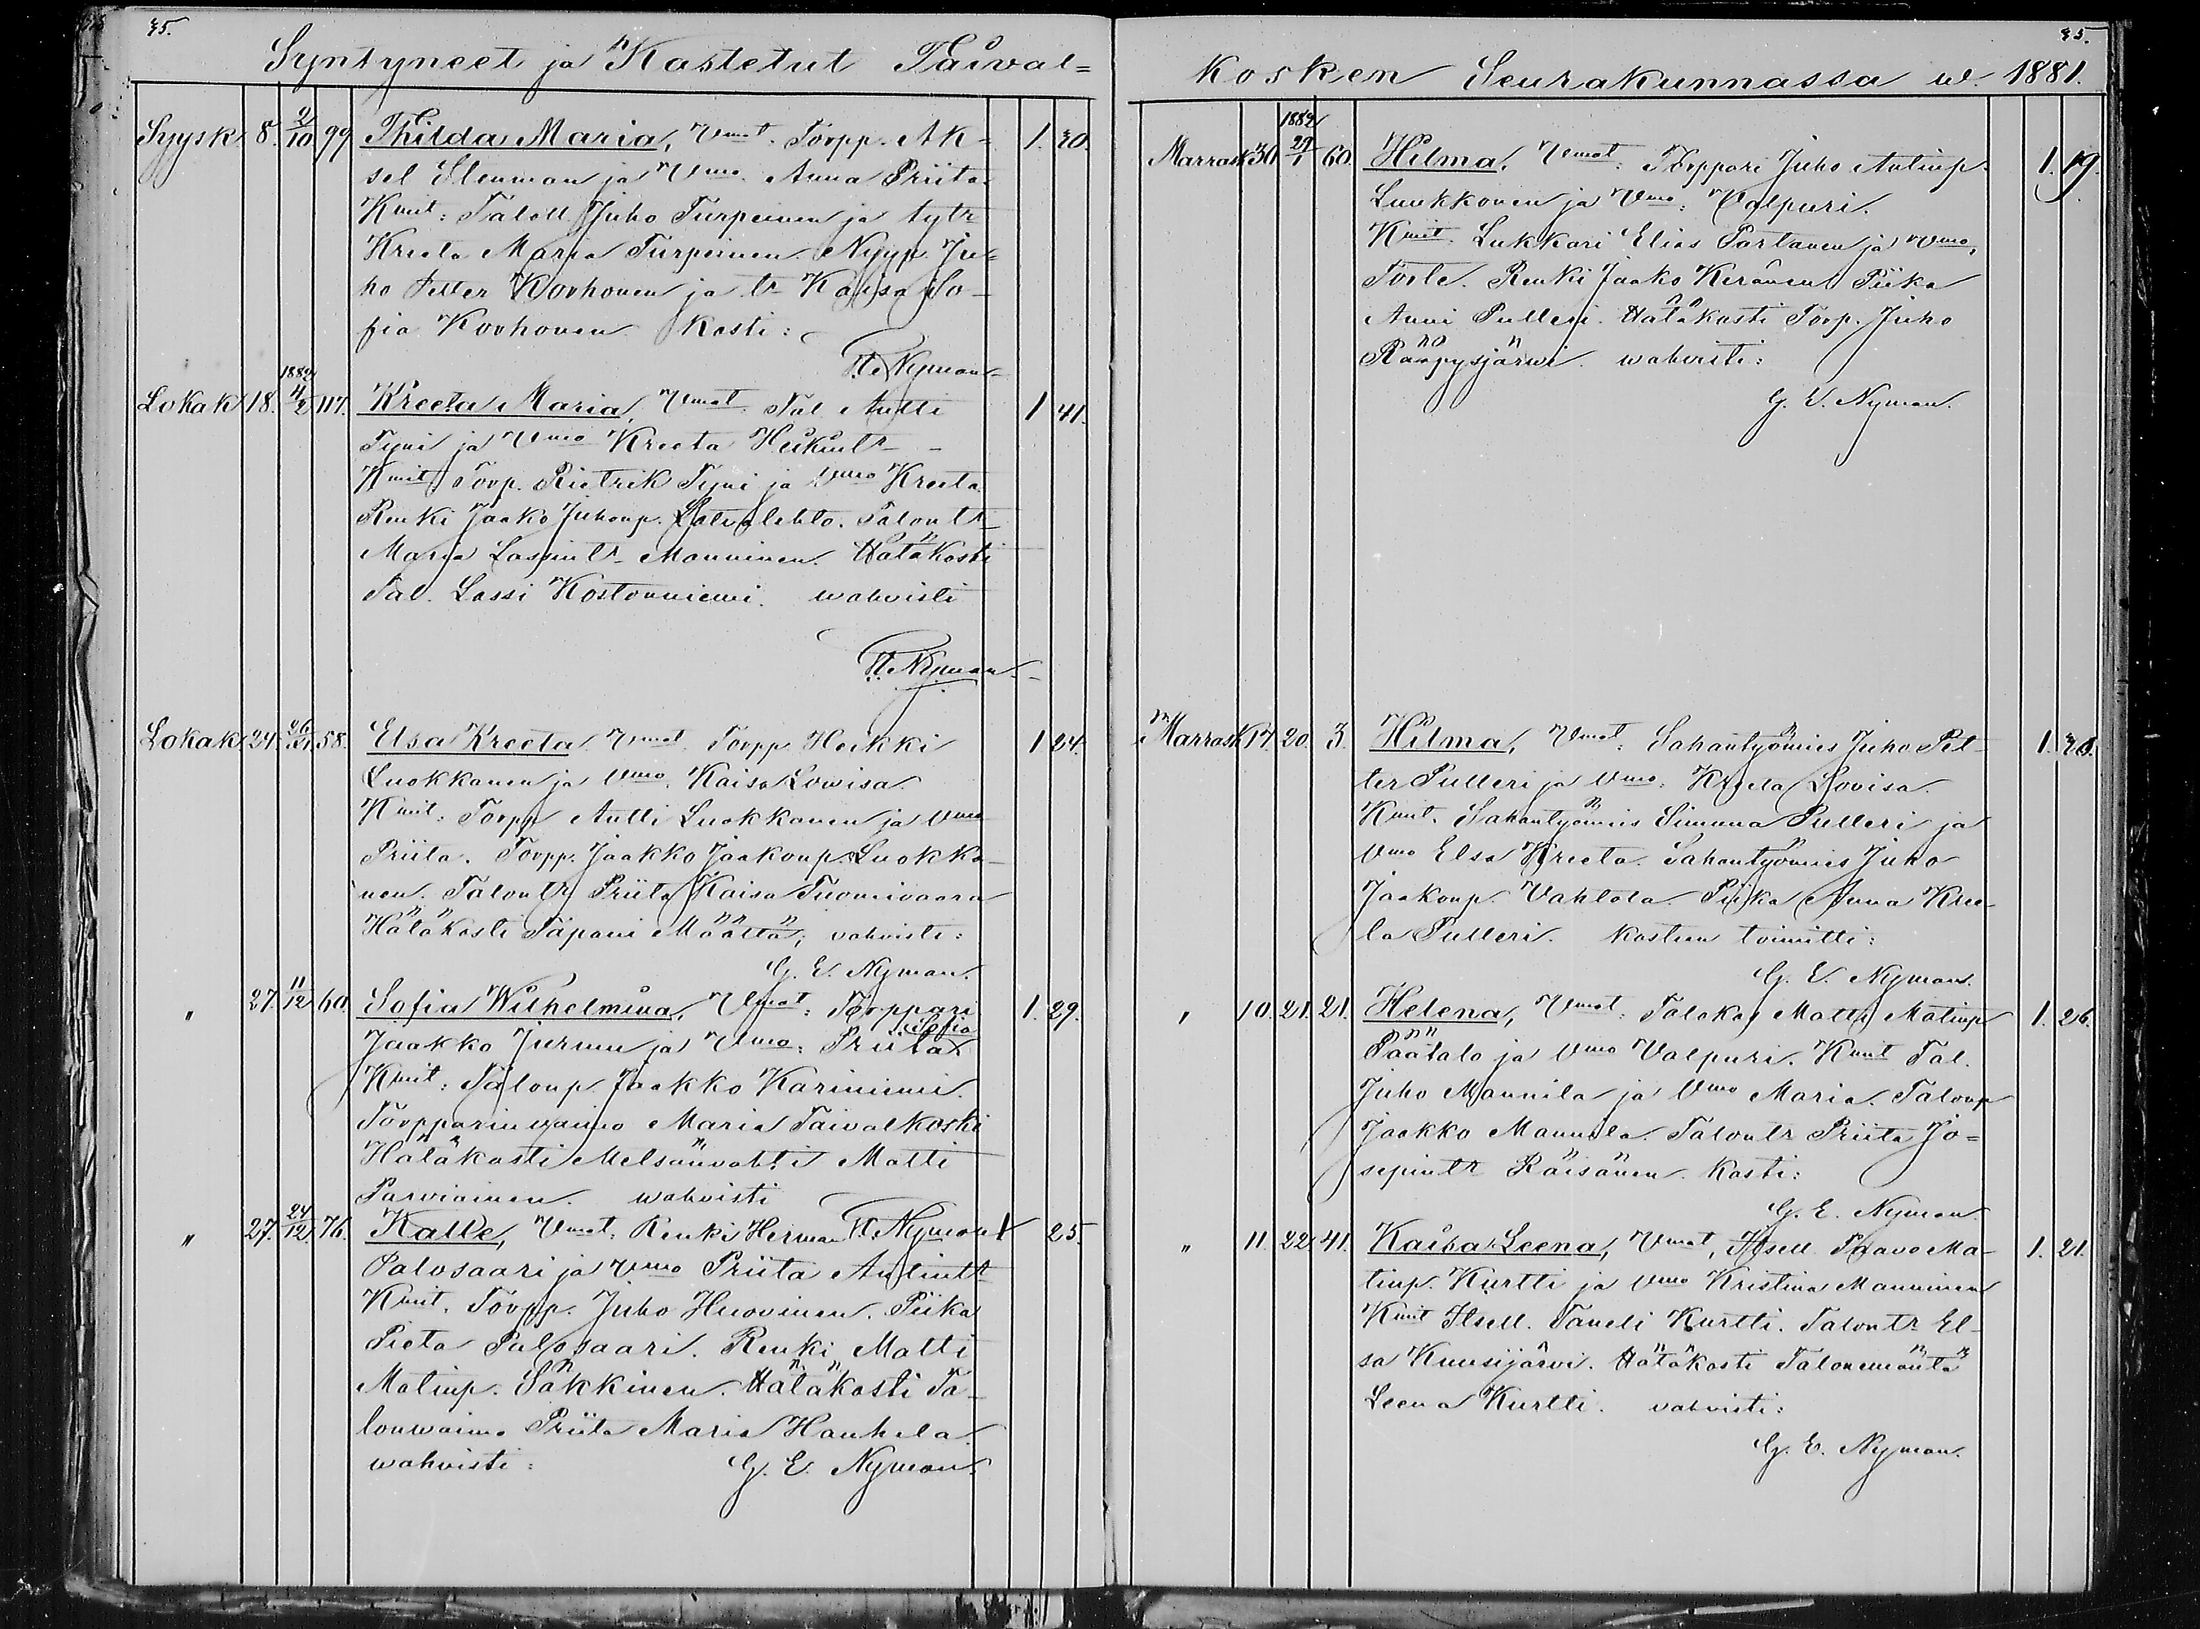 35.
Syntyneet ja Kastetut Taival=
Syysk. 8. 2/10 99 Thilda Maria, Vmat. Torpp. Ak-
sel Stenman ja Vmo. Anna Priita.
Kmit: Taloll Juho Turpeinen ja tytr
Kreeta Maria Turpeinen. Nyyp. Ju-
ho Petter Korhonen ja tr Kaisa So-
fia Korhonen Kasti:
Nyman
1. 30.
Lokak 18. 1882 4/2 117. Kreeta Maria, Vmat. Tal Antti
Tyni ja Vmo Kreeta Heikintr
Kmit Torp. Rietrik Tyni ja Vmo Kreeta
Renki Jaako Juhonp. Latvalehto. Talontr
Maria Lassintr Manninen. Hätäkasti
Tal. Lassi Kostonniemi. wahvisti
Nyman
1 41.
Lokak 24. 26/11 58. Elsa Kreeta Vmat Torpp Heikki
Luokkanen ja Vmo. Kaisa Lowisa.
Kmit: Torpp Antti Luokkanen ja Vmo
Priita. Torpp. Jaakko Jaakonp. Luokka-
nen. Talontr Priita Kaisa Tuomivaara
Hätäkasti Tapani Määttä; vahvisti:
G. E. Nyman.
1 24.
" 27. 11/12 60. Sofia Wilhelmina, Vmat: Torppari
Jaakko Jurmu ja Vmo: Priita Sofia
Kmit: Talonp. Jaakko Kariniemi.
Torpparin waimo Maria Taivalkoski
Hätäkasti Metsänvahti Matti
Parviainen. wahvisti
Nyman
1. 29.
" 27. 24/12 76. Kalle, Vmat: Renki Herman
Palosaari ja Vmo Priita Antintr
Kmit. Torpp. Juho Huovinen. Piika
Pieta Palosaari. Renki Matti
Matinp. Säkkinen. Hätäkasti Ta-
lonwaimo Priita Maria Hanhela.
wahvisti: G. E. Nyman.
1 25.
35.
Kosken Seurakunnassa w. 1881.
Marrask 30 1882 29/1 60. Hilma, Vmat: Torppari Juho Antinp.
Luukkonen ja Vmo: Valpuri.
Kmit. Lukkari Elias Partanen ja Vmo,
Renki Jaako Keränen Piika
Anni Pulleri. Hätäkasti Torp. Juho
Rääpysjärwi. wahvisti:
G. E. Nyman.
1. 19.
Marrask 17 20. 3. Hilma, Vmat: Sahantyömies Juho Pet-
ter Pulleri ja Vmo: Kreeta Lovisa.
Kmit. Sahantyömies Simuna Pulleri ja
Vmo Elsa Kreeta. Sahantyömies Juho
Jaakonp. Vahtola. Piika Anna Kree-
ta Pulleri. Kasteen toimitti:
G. E. Nyman.
1.
" 10. 21. 21. Helena, Vmat: Talokas Matti Matinp
Päätalo ja Vmo Valpuri. Kmit Tal.
Juho Mannila ja Vmo Maria. Talonp
Jaakko Mannila. Talontr Priita Jo=
sepintr Räisänen. Kasti:
G. E. Nyman.
1. 26.
" 11. 22 41. Kaisa Leena, Vmat, Itsell. Paavo Ma-
tinp. Kurtti ja Vmo Kristina Manninen
Kmit Itsell. Taneli Kurtti. Talontr El-
sa Kuusijärvi. Hätäkasti Talonemäntä
Leena Kurtti. vahvisti:
G. E. Nyman.
1. 21.